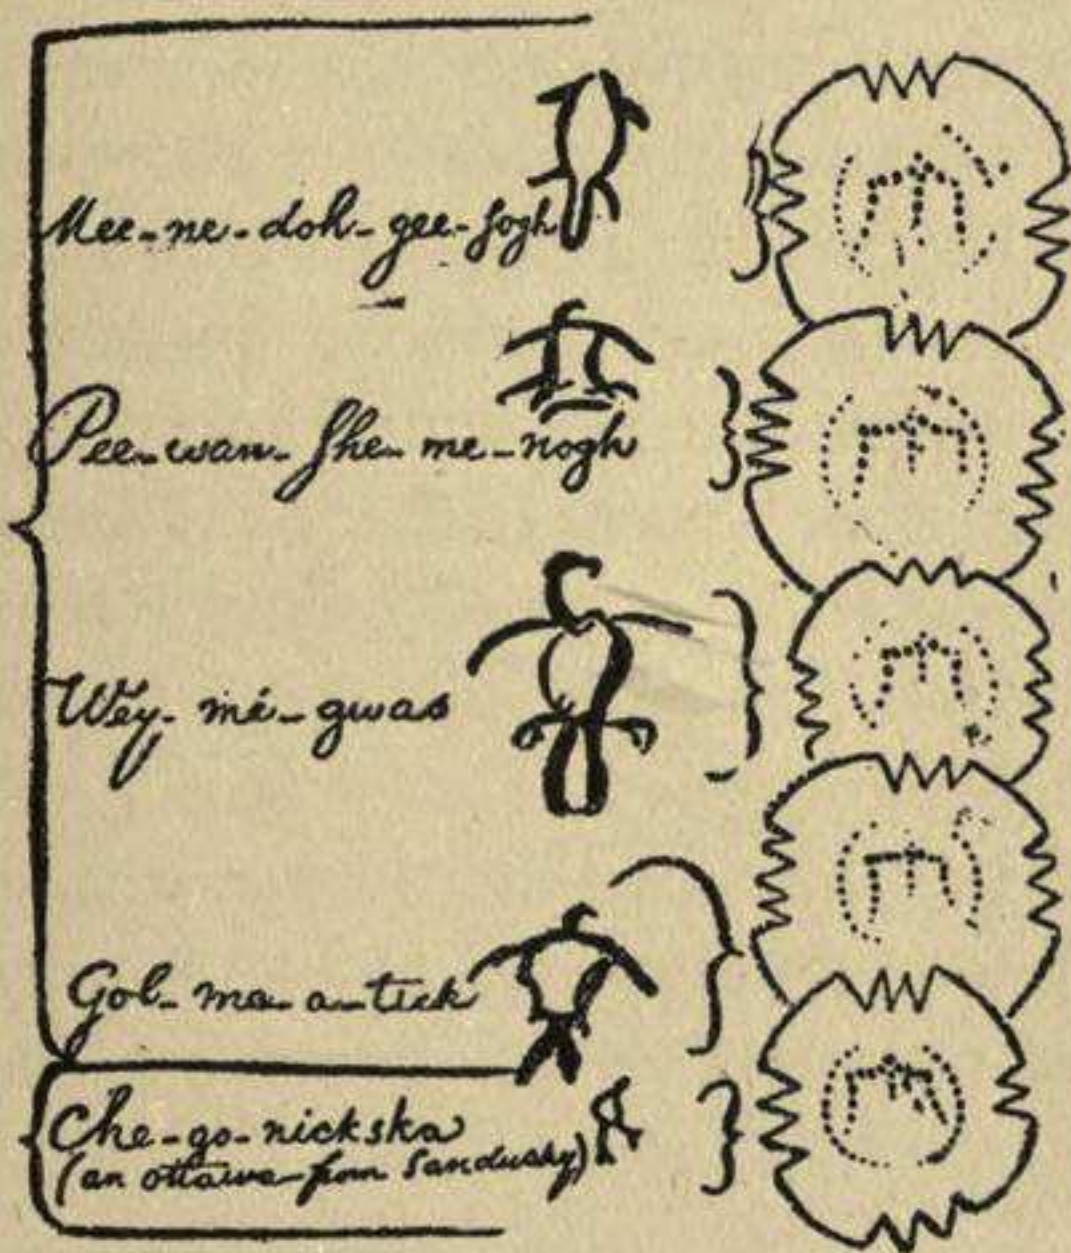 Mee-ne-doh-gee-sogh
Pee-wan-she-me-nogh
Wey-mé-gwas
Gob-ma-a-tick
Che-go-nickska
(an ottawa from Sandusky)